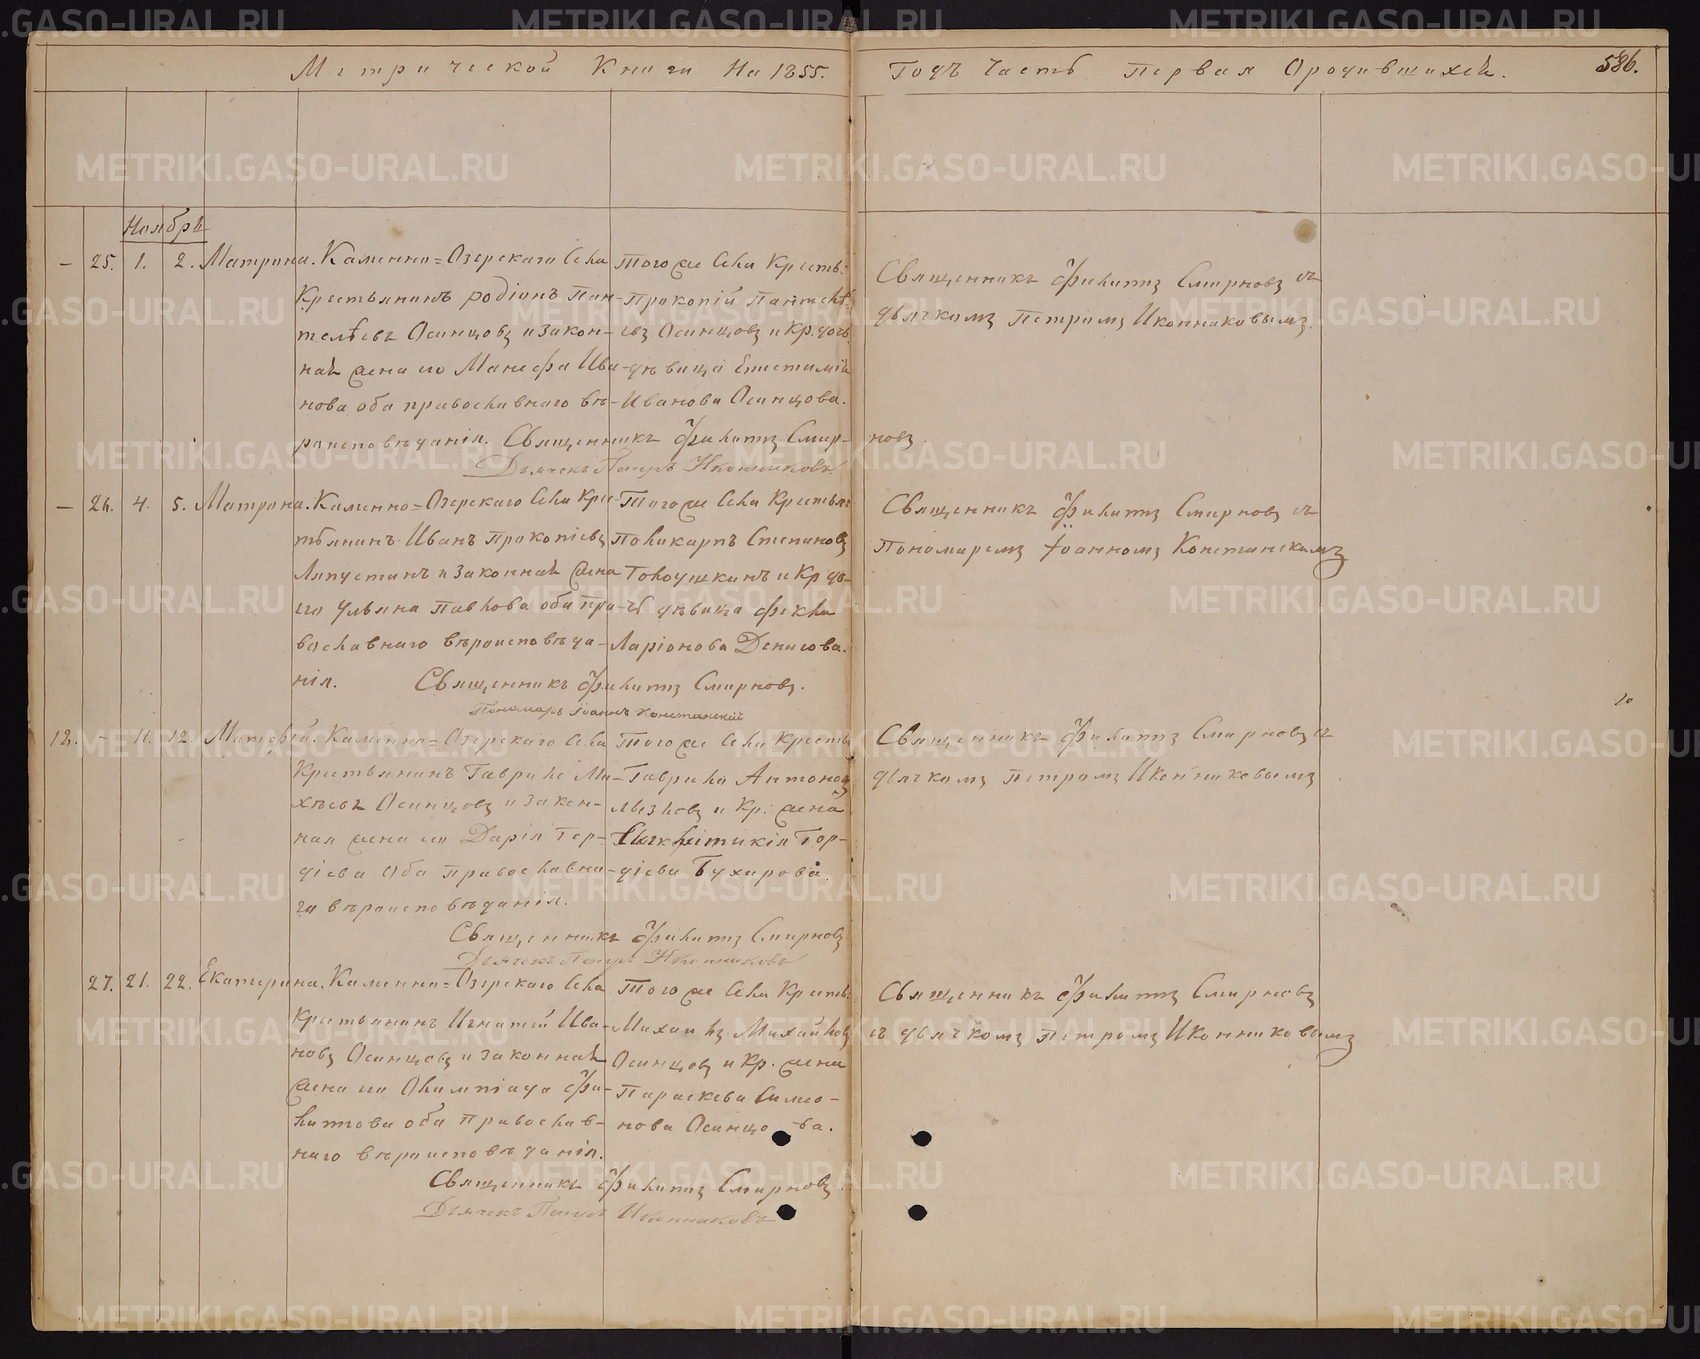 Метрической Книги На 1855. Годъ Часть Первая Ородившихсѧ. 586.
Ноябрь
– 25. 1. 2. Матрона. Каменно=Озерскаго Села
Крестьянинъ Родіонъ Пан-
телѣевъ Осинцовъ и закон-
ная жена его Манефа Ива-
нова оба православнаго вѣ-
роисповѣданія. Священникъ Филиппъ Смир-новъ.
Дьячекъ Петръ Иконниковъ
Тогоже Села Кресть:
Прокопій Пантелѣ-
евъ Осинцовъ и Кр. дочь
дѣвица Епистимія
Иванова Осинцова.
Священникъ Филиппъ Смирновъ съ
дьячкомъ Петромъ Иконниковымъ.
– 26. 4. 5. Матрона. Каменно=Озерскаго Села Кре-
тьянинъ Иванъ Прокопіевъ
Ляпустинъ и законная жена
его Ульяна Павлова оба пра-
вославнаго вѣроисповѣда-
нія. Священникъ Филиппъ Смирновъ.
Пономарь Іоаннъ Констанскій
Тогоже Села Крестьян:
Поликарпъ Степановъ
Толоушкинъ и Кр до-
чь дѣвица Фекла
Ларіонова Денисова.
Священникъ Филиппъ Смирновъ съ
Пономаремъ Іоанномъ Констанскимъ
12. – 11. 12. Матфей. Каменно=Озерскаго Села
Крестьянинъ Гаврило Ми-
хѣевъ Осинцовъ и закон-
ная жена его Дарія Гор-
дѣева Оба православна-
го вѣроисповѣданія.
Священникъ Филиппъ Смирновъ
Дьячекъ Петръ Иконниковъ
Тогоже Села Кресть
Гаврило Антоновъ
и Кр: жена
Гор-
дѣева Бухарова.
Священникъ Филиппъ Смирновъ съ
дьячкомъ Петромъ Иконниковымъ
27. 21. 22. Екатерина. Каменно=Озерскаго Села
Крестьянинъ Игнатій Ива-
новъ Осинцовъ и законная
жена его Олимпіада Фи-
липпова оба Православ-
наго вѣроисповѣданія.
Священникъ Филиппъ Смирновъ.
Дьячекъ Петръ Иконниковъ
Тогоже Села Кресть:
Михаилъ Михайловъ
Осинцовъ и Кр. жена
Параскева Симео-
нова Осинцова.
Священникъ Филиппъ Смирновъ
съ дьячкомъ Петромъ Иконниковымъ
METRIKI.GASO-URAL.RU